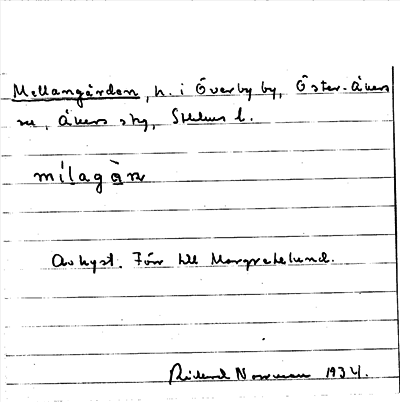 Mellangården, h. i Överby by, Öster-Åkers
sn, Åkers skg, Sthlms l.
mílagàɳ
Avhyst. Förr till Margretelund.
Rickard Norrman 1934.